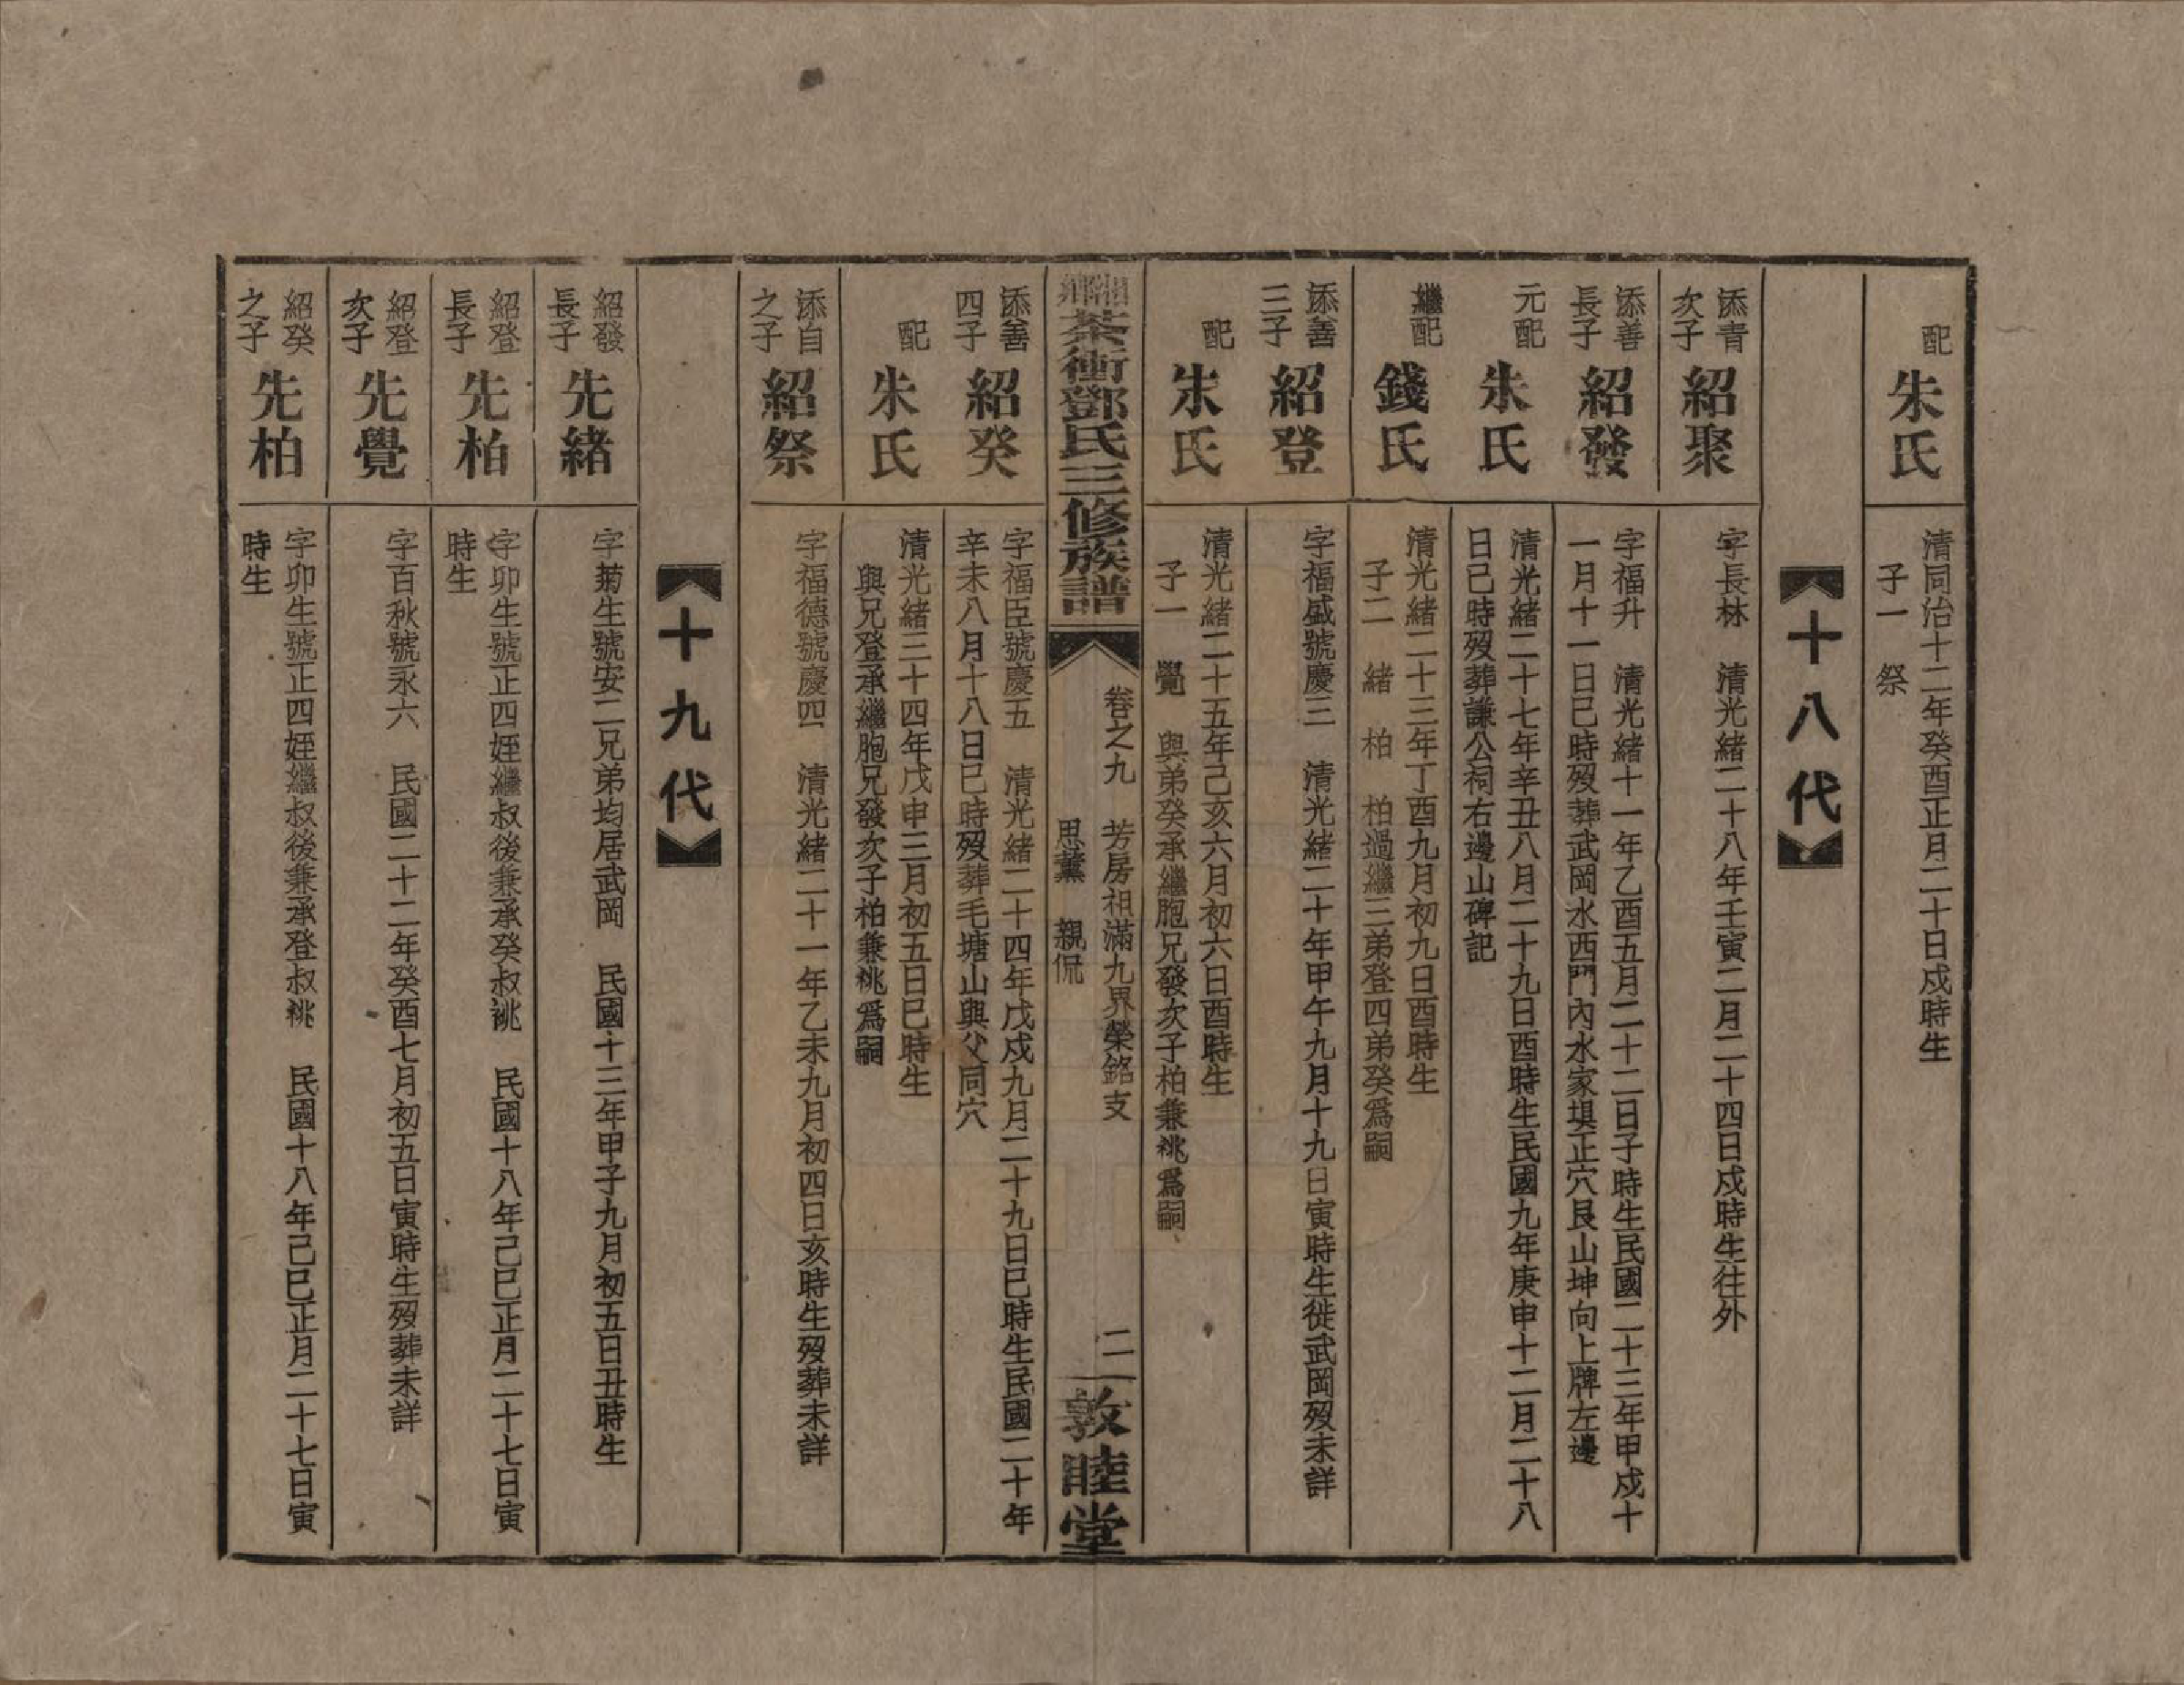 配
朱氏
清同治十二年癸酉正月二十日戍時生
子一　祭
十八代
添青
次子
紹聚
字長林　清光緒二十八年壬寅二月二十四日戍時生往外
添善
長子
紹發
字福升　清光緒十一年乙酉五月二十二日子時生民國二十三年甲戍十
一月十一日己時歿葬武岡水西門內水家塤正穴艮山坤向上牌左邊
元配
朱氏
清光緒二十七年辛丑八月二十九日酉時生民國九年庚申十二月二十八
日己時歿葬謙公祠右邊山碑記
繼配
錢氏
清光緒二十三年丁酉九月初九日酉時生
子二　緒　柏　柏過繼三弟登四弟癸爲嗣
添善
三子
紹登
字福盛號慶三　清光緒二十年甲午九月十九日寅時生徙武岡歿未詳
配
朱氏
清光緒二十五年己亥六月初六日酉時生
子一　覺　與弟癸承繼胞兄發次子柏兼祧爲嗣
茶衝鄧氏三修族譜
卷之九　芳房祖滿九界榮銘支
思薰　親侃
二
敦睦堂
添善
四子
紹癸
字福臣號慶五　清光緒二十四年戊戍九月二十九日巳時生民國二十年
辛未八月十八日巳時歿葬毛塘山與父同穴
配
朱氏
清光緒三十四年戊申三月初五日巳時生
與兄登承繼胞兄發次子柏兼祧爲嗣
添自
之子
紹祭
字福德號慶四　清光緒二十一年乙未九月初四日亥時生歿葬未詳
十九代
紹發
長子
先緒
字菊生號安二兄弟均居武岡　民國十三年甲子九月初五日丑時生
紹登
長子
先柏
字卯生號正四姪繼叔後兼承癸叔祧　民國十八年己巳正月二十七日寅
時生
紹登
次子
先覺
字百秋號永六　民國二十二年癸酉七月初五日寅時生歿葬未詳
紹癸
之子
先柏
字卯生號正四姪繼叔後兼承登叔祧　民國十八年己巳正月二十七日寅
時生